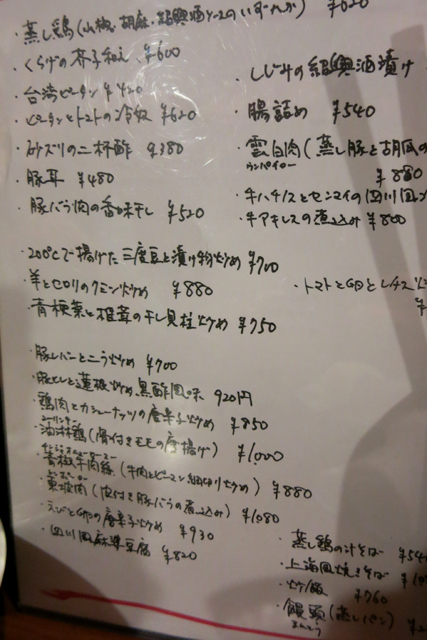 ・蒸し鶏(山椒・胡麻・紹興酒ソースのいずれか) ¥620
・くらげの芥子和え ¥600
・台湾ピータン ¥420
・ピータンとトマトの冷奴 ¥620
・砂ズリの二杯酢 ¥380
・豚耳 ¥480
・豚バラ肉の香味干し ¥520
・200℃で揚げた三度豆と漬け物炒め ¥700
・羊とセロリのクミン炒め ¥880
・青梗菜と椎茸の干し貝柱炒め ¥750
・豚レバーとニラ炒め ¥700
・豚ヒレと蓮根炒め黒酢風味 920円
・鶏肉とカシューナッツの唐辛子炒め ¥850
・油淋鶏(骨付きモモの唐揚げ) ¥1,000
・青椒牛肉絲(牛肉とピーマン細切り炒め) ¥880
・東坡肉(皮付き豚バラの煮込み) ¥1,080
・えびと卵の唐辛子炒め ¥930
・四川風麻婆豆腐 ¥820
・しじみの紹興酒漬け
・腸詰め ¥540
・雲白肉(蒸し豚と胡瓜の
ウンパイロー
¥880
・牛ハチノスとセンマイの四川風
・牛アキレスの煮込み ¥800
・トマトと卵とレタス炒め
・蒸し鶏の汁そば ¥540
・上海風焼きそば
・炒飯 ¥760
・饅頭(蒸しパン)
まんとう